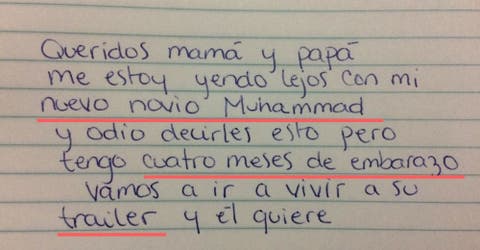 Queridos mamá y papá
me estoy yendo lejos con mi
nuevo novio Muhammad
y odio decirles esto pero
tengo cuatro meses de embarazo
vamos a ir a vivir a su
trailer y él quiere